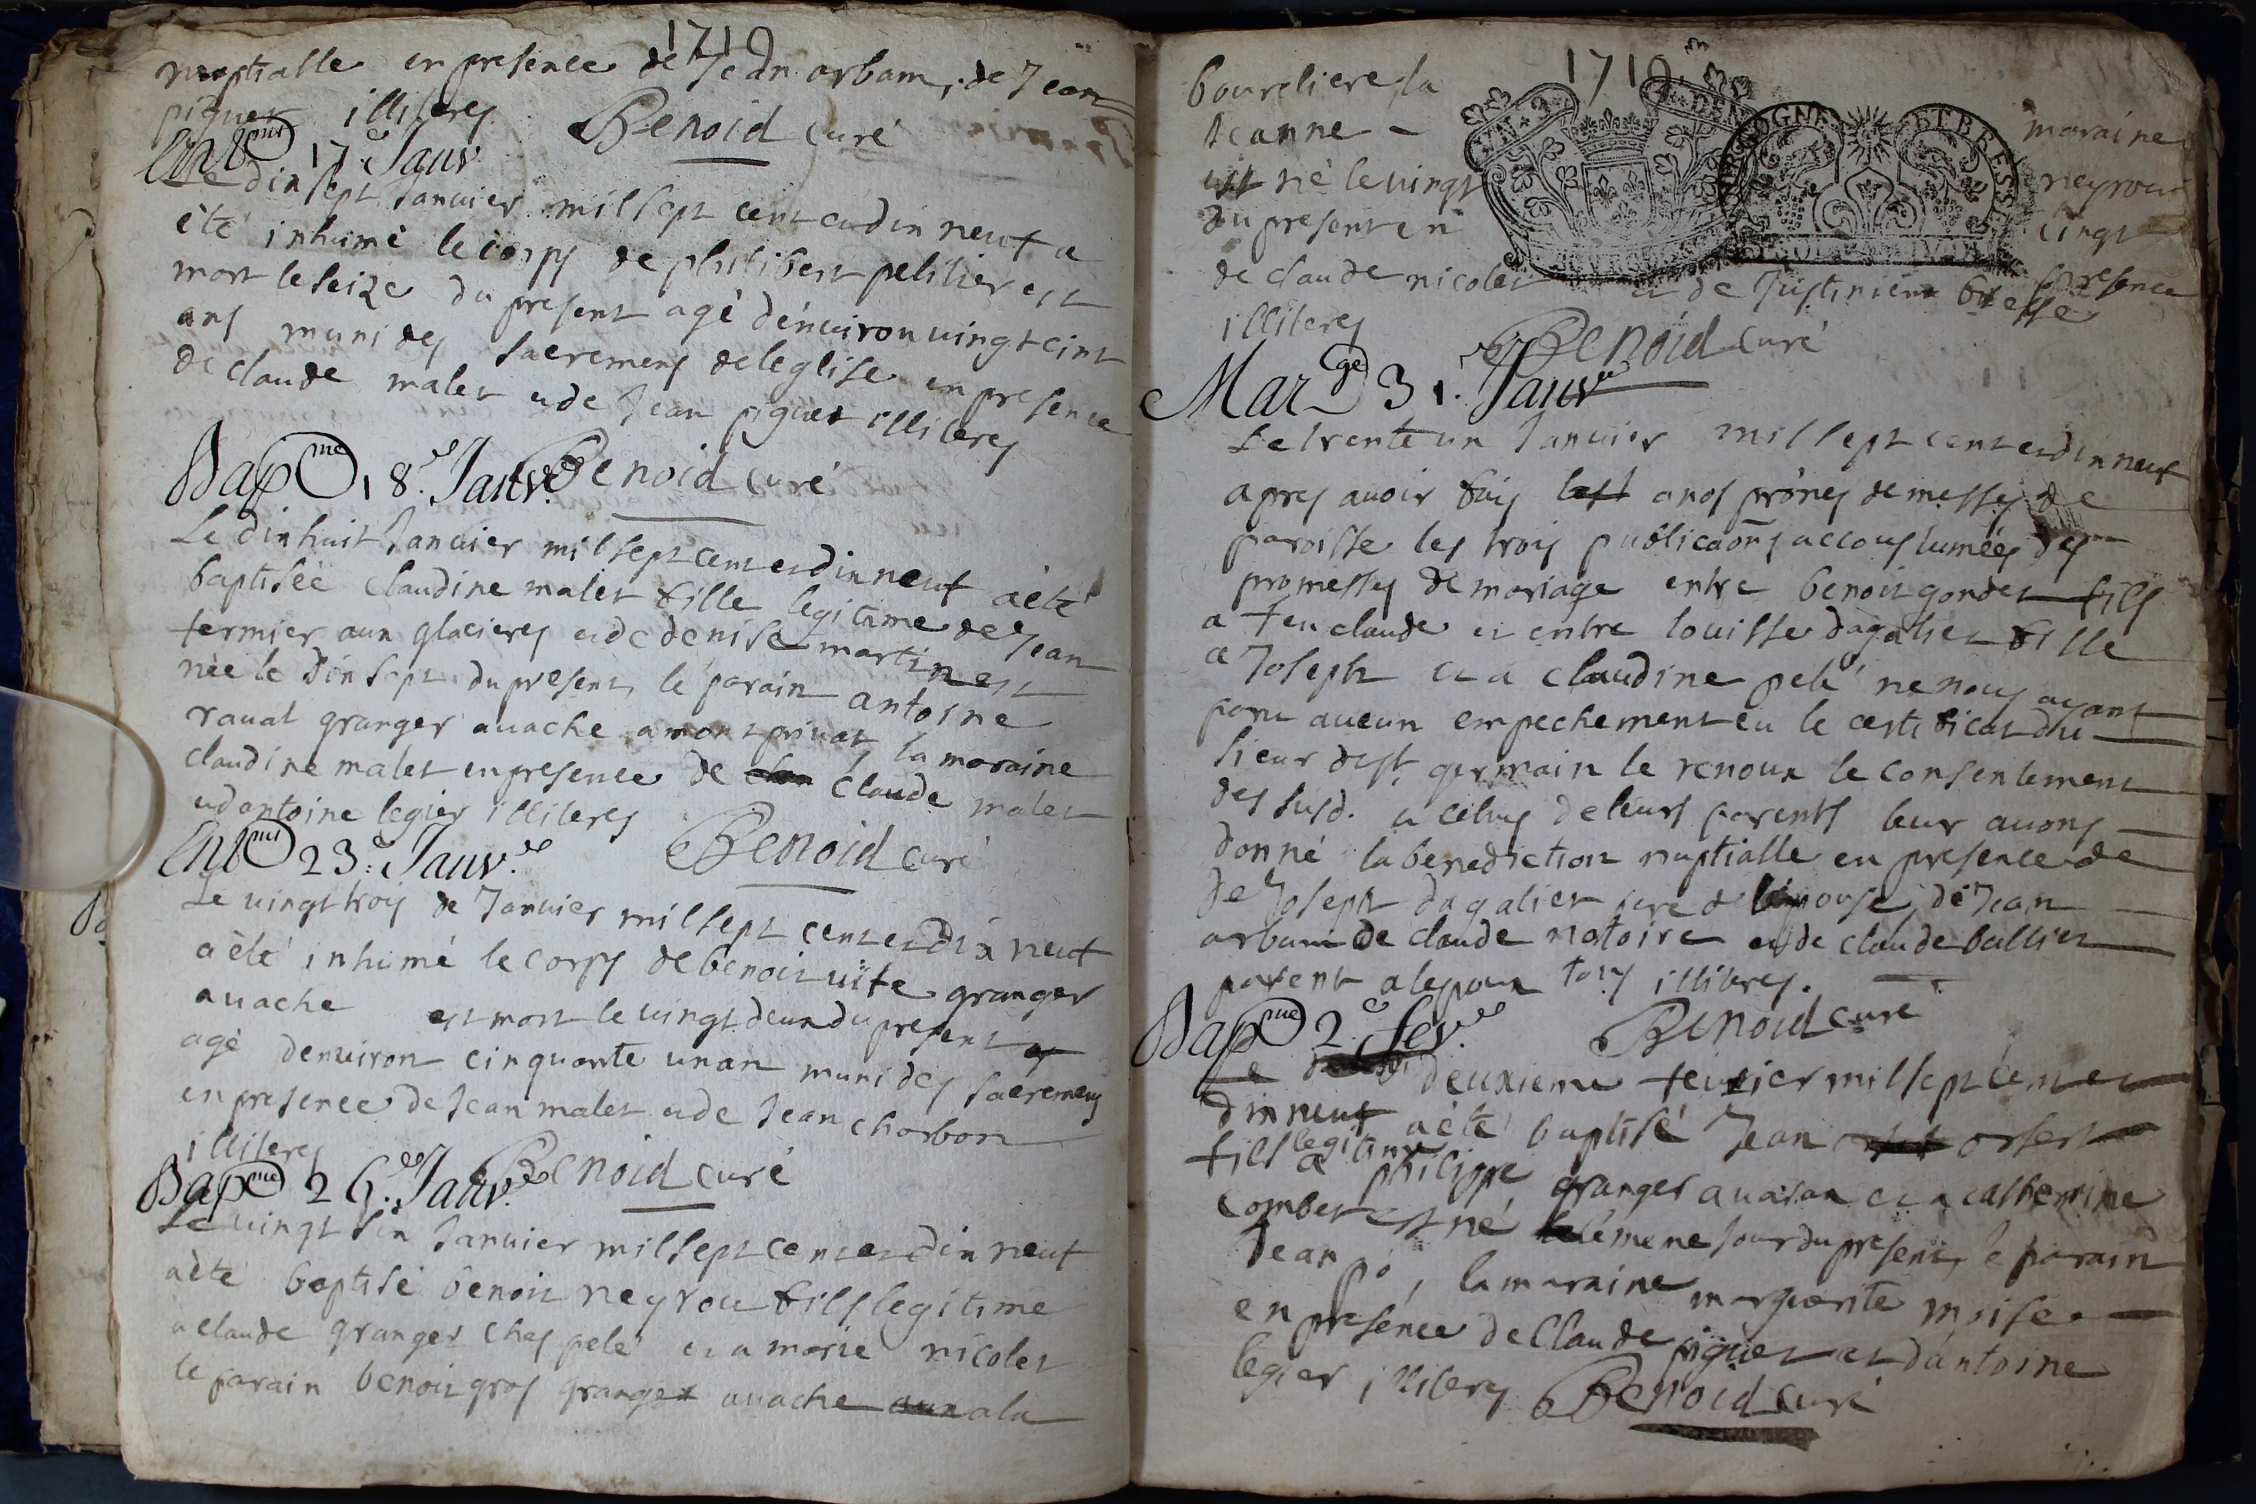 1719
nuptialle en presence de Jean arbam, de Jean
piguet illiterés
Benoid curé
Ent.mt 17.e Janv.
Le dix sept Janvier mil sept cent et dix neuf a
été inhumé le corps de philibert pelitier est
mort le seize du present agé d'environ vingt cint
ans muni des sacremens de leglise en presence
de claude malet et de Jean piguet illiterés
Benoid curé
Bap.me 18.e Janv.
Le dix huit Janvier mil sept cent et dix neuf a été
baptisée claudine malet fille legitime de Jean
fermier aux glacieres et de denise martin est
née le dix sept du present, le parain antoine
raval granger a vache a mont privat, la maraine
claudine malet en presence de claude malet
et d antoine legier illiterés
Benoid curé
Ent.mt 23.e Janv.
Le vingt trois de Janvier mil sept cent et dix neuf
a été inhumé le corps de benoit vite granger
a vache est mort le vingt deux du present
agé denviron cinquante un an muni des sacremens
en presence de Jean malet et de Jean charbon
illiterés
Benoid curé
Bap.me 26.e Janv.
Le vingt six Janvier mil sept cent et dix neuf
a été baptisé benoit neyrou fils legitime
a claude granger chez pelé et a marie nicolet
le parain benoit gros granger a vache a la
1719
boureliere, la maraine
Jeanne - neyrou
est né le vingt cinqt
du present en presence
de claude nicolet et de Justinien bresse
illiterés
Benoid curé
Mar.ge 31. Janv.
Le trente un Janvier mil sept cent et dix neuf
apres avoir fais a nos prônes de messes de
paroisse les trois publicaons accoustumées des
promesses de mariage entre benoit gondet fils
a feu claude et entre louisse dagalier fille
a Joseph et a claudine pelé ne nous ayant
paru aucun empechement eu le certificat du
sieur de st germain le renoux le consentement
des susd. et celuy de leurs parents leur avons
donné la benediction nuptialle en presence de
de Joseph dagalier pere de lépouse, de Jean
arbam de claude notoire et de claude ballier
parent a lepoux tous illiterés.
Benoid curé
Bap.me 2.e fev.
Le deuxieme fevrier mil sept cent et
dix neuf a été baptisé Jean orset
fils legitime a philippe granger a vavan et a catherine
combet est né le même jour du present, le parain
Jean po, la maraine marguerite moise
en presence de claude piguet et d'antoine
legier illiterés Benoid curé